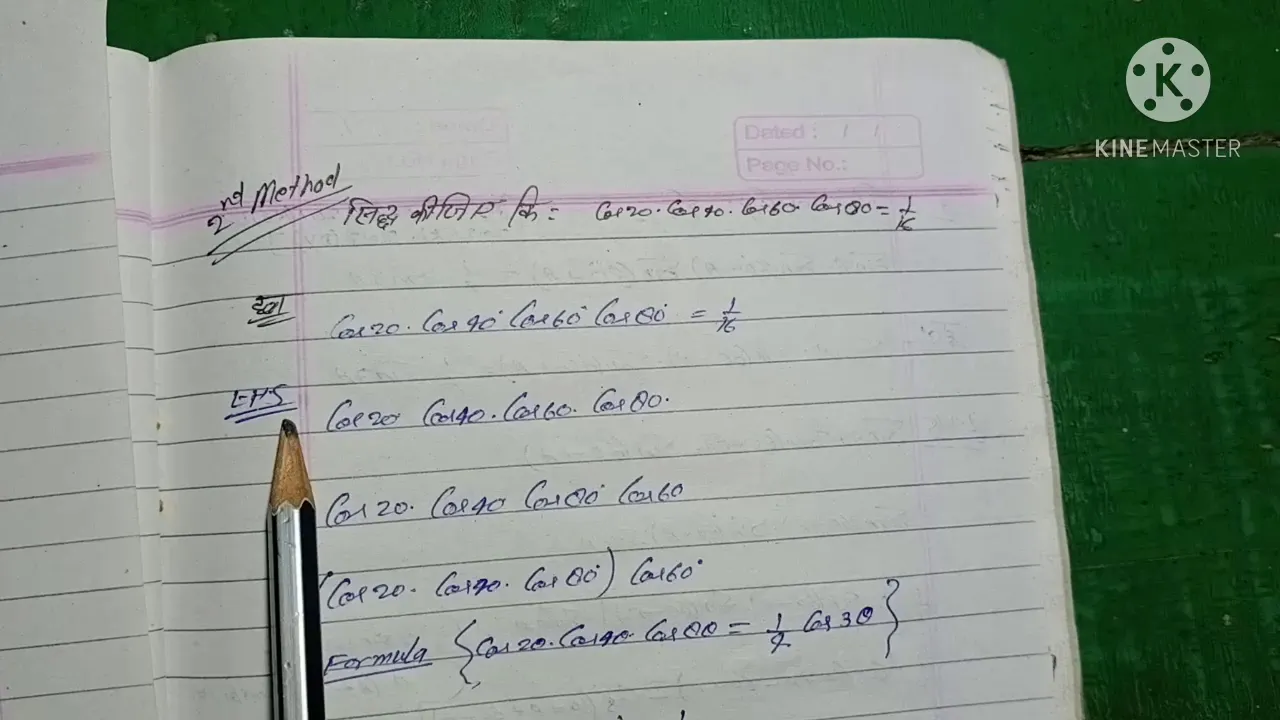 KINEMASTER
Dated : / /
Page No.:
2nd Method
सिद्ध कीजिए कि = Cos20. Cos40. Cos60. Cos80 = 1/16
हल Cos20. Cos40° Cos60° Cos80° = 1/16
LHS Cos20 Cos40. Cos60. Cos80.
Cos20. Cos40 Cos80° Cos60
(Cos20. Cos40. Cos80°) Cos60°
Formula {Cos20. Cos40. Cos80 = 1/4 Cos3θ}